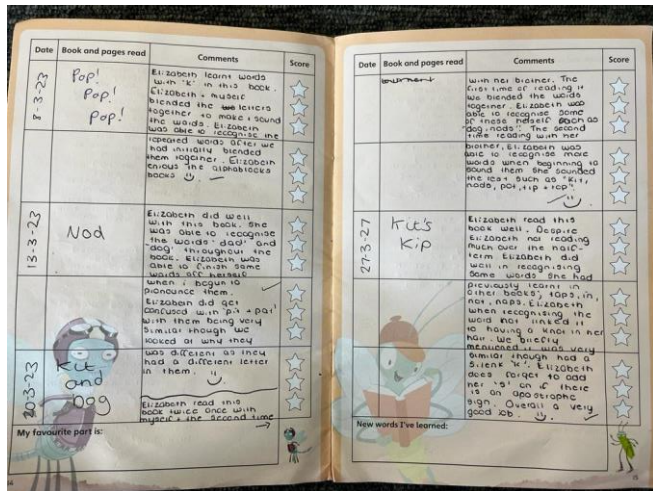 Date Book and pages read Comments Score
8-3-23
Pop!
Pop!
Pop!
Elizabeth learnt words
with 'k' in this book.
Elizabeth + myself
blended the letters
together to make + sound
the words. Elizabeth
was able to recognise the
repeated words after we
had initially blended
them together. Elizabeth
enjoys the alphablocks
books
13-3-23
Nod
Elizabeth did well
with this book. She
was able to recognise
the words 'dad' and
'dog' throughout the
book. Elizabeth was
able to finish some
words off herself
when i begun to
pronounce them.
Elizabeth did get
confused with 'pit + pat'
with them being very
similar though we
looked at why they
was different as they
had a different letter
in them.
20-3-23
Kit
and
Dog
Elizabeth read this
book twice once with
myself + the second time
My favourite part is:
Date Book and pages read Comments Score
with her brother. The
first time of reading it
we blended the words
together. Elizabeth was
able to recognise some
of these herself such as
"dog, nods". The second
time reading with her
brother, Elizabeth was
able to recognise more
words when beginning to
sound them she sounded
the rest such as "Kit,
nods, pot, tip + top".
27-3-27
Kit's
Kip
Elizabeth read this
book well. Despite
Elizabeth not reading
much over the half-
term Elizabeth did
well in recognising
some words she had
previously learnt in
other books; taps, in,
not, naps. Elizabeth
when recognising the
word not linked it
to having a knot in her
hair. We briefly
mentioned it was very
similar though had a
silent 'k'. Elizabeth
does forget to add
her 's' on if there
is an apostrophe
sign. Overall a very
good job.
New words I've learned:
15